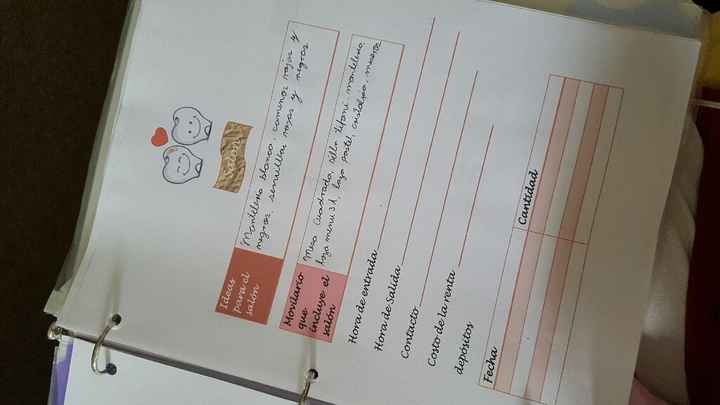 Salón
Ideas
para el
salón
Mantelería blanca, caminos rojos y
negros, servilletas rojas y negras
Movilario
que
incluye el
salón
Mesa cuadrada, silla tifani, mantelería
hoja menu 3d, base pastel, cristalería, mesero
Hora de entrada
Hora de Salida
Contacto
Costo de la renta
depósitos
Fecha
Cantidad